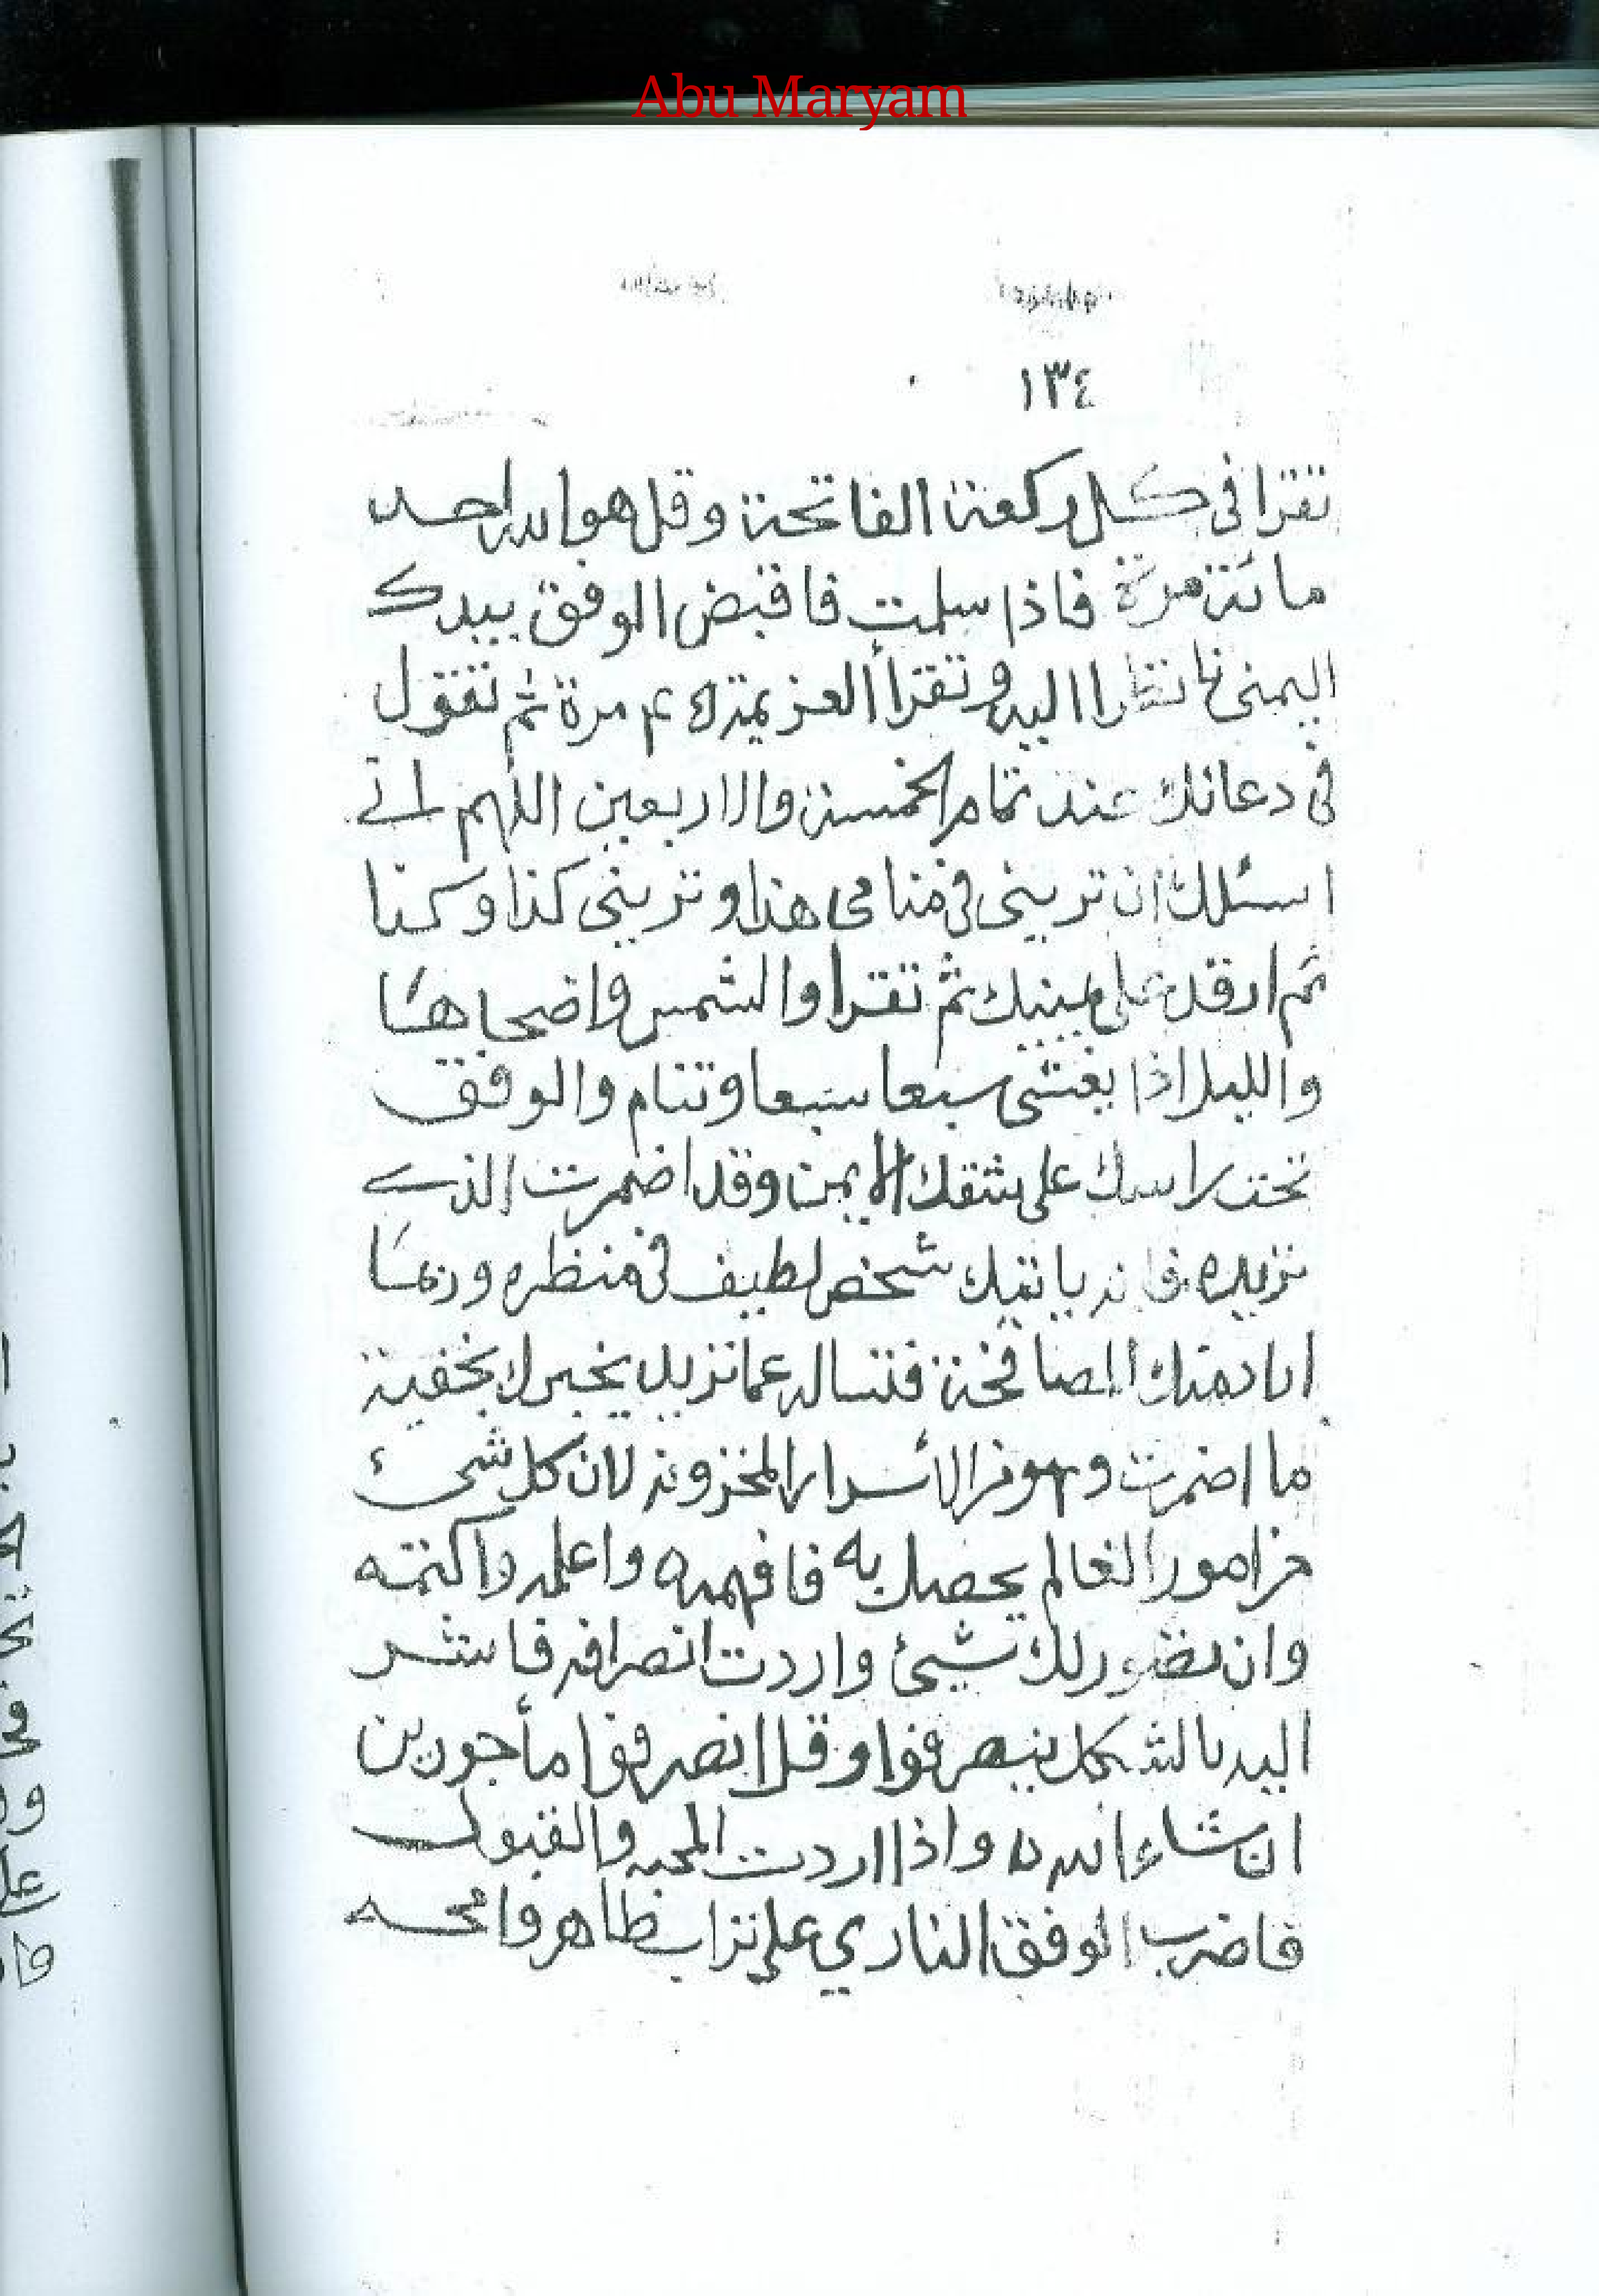 Abu Maryam
١٣٤
تقرا فى كل ركعة الفاتحة وقل هو الله احد
مائة مرة فاذا سلمت فاقبض الوفق بيدك
اليمنى ناظرا اليه وتقرأ العزيمة ٤٥ مرة ثم تقول
فى دعائك عند تمام الخمسة والاربعين اللهم انى
اسئلك ان ترينى فى منامى هذا وترينى كذا وكذا
ثم ارقد على يمينك ثم تقرا والشمس وضحاها
والليل اذا يغشى سبعا سبعا وتنام والوفق
تحت راسك على شقك الايمن وقد اضمرت الذى
تريده فانه ياتيك شخص لطيف فى منظره وربما
المصافحة فتساله عما تريد يخبرك بخفية
ما اضمرت وهو من الأسرار المخزونه لان كل شئ
من امور العالم يحصل به فافهمه واعلمه واكتمه
وان لك شيئ واردت انصرافه فاشر
اليه بالشكل ينصرفوا وقل انصرفوا مأجورين
ان شاء الله ه واذا اردت المحبه والقبول
فاضرب الوفق الناري على تراب طاهر وامحه